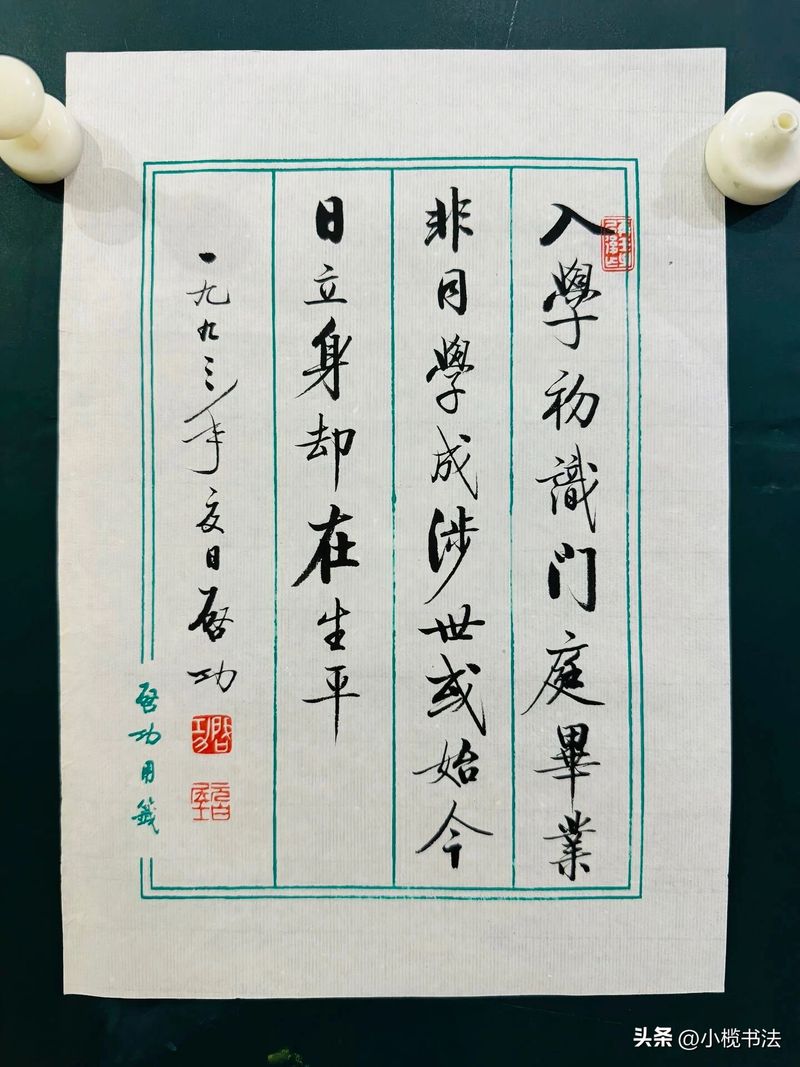 入學初識门庭畢業
非同學成涉世或始今
日立身却在生平
一九九三年夏日启功
启功用箋
头条 @小榄书法